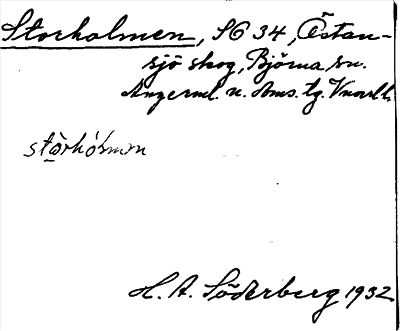 Storholmen, SG 34, Östan-
sjö skog, Björna sn.
Ångerml. n. doms. tg. Vnorrl.
stòrhólmen
H. A. Söderberg 1932